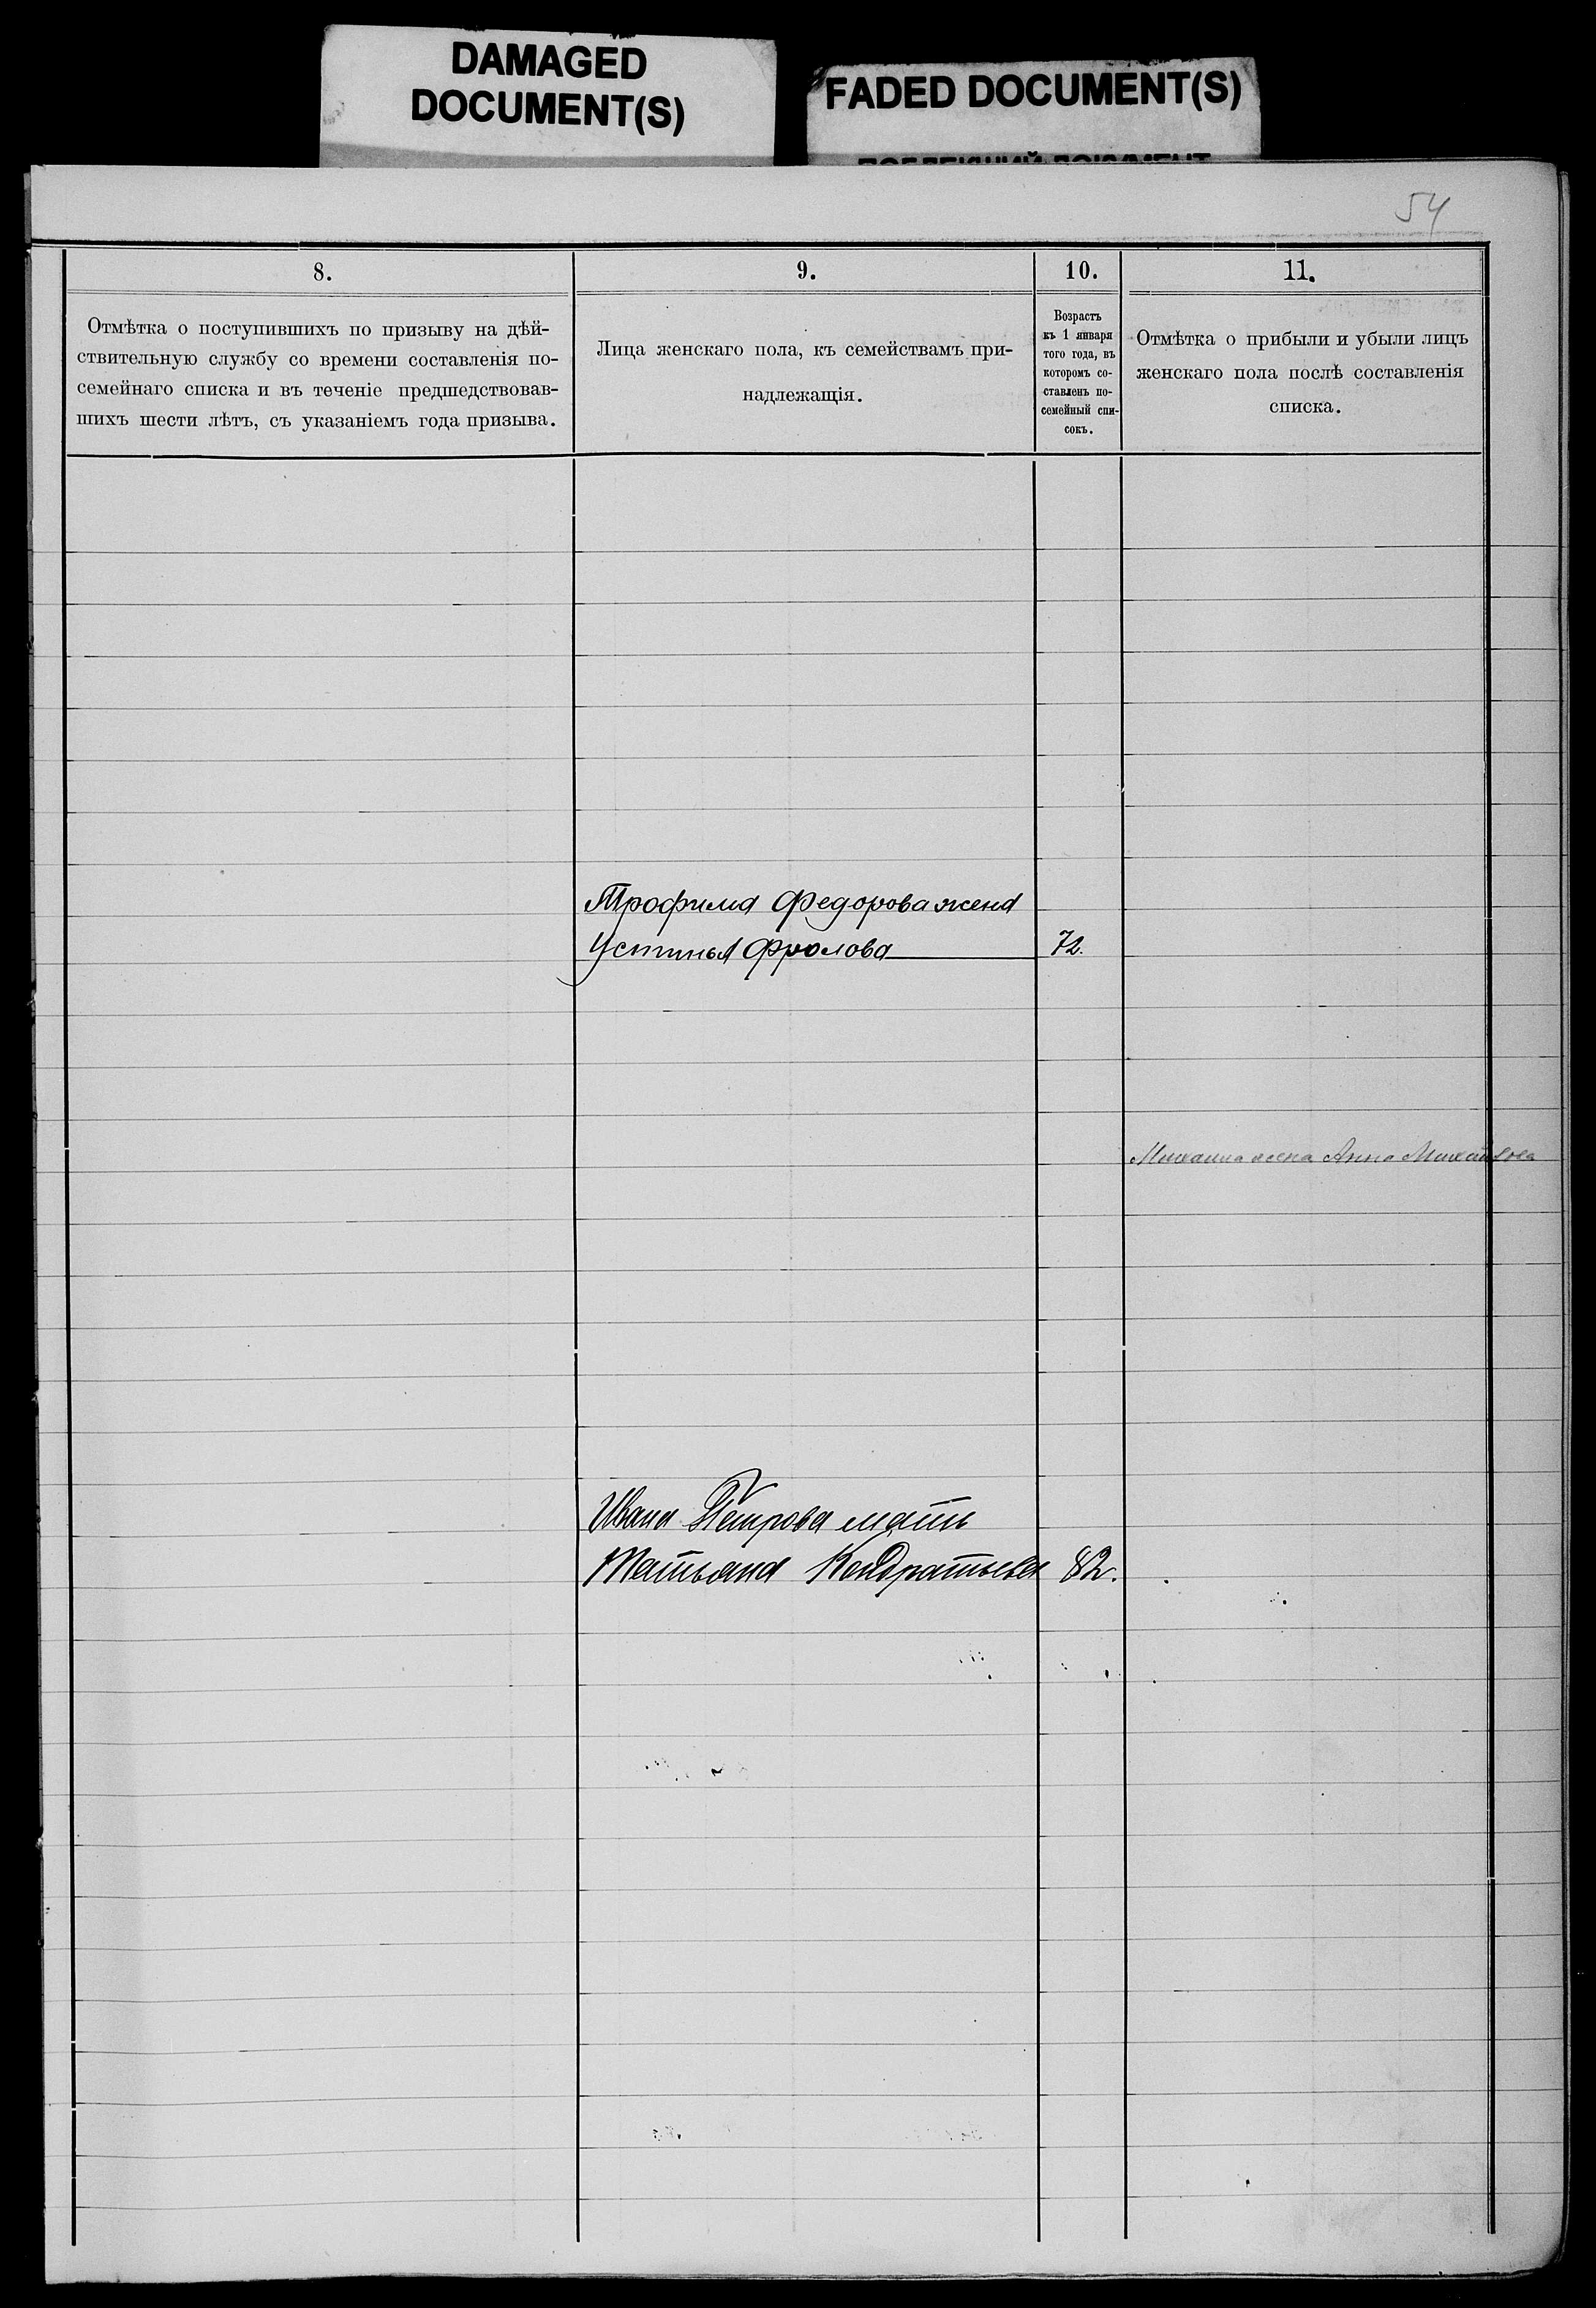 DAMAGED
DOCUMENT(S)
FADED DOCUMENT(S)
54
8.
9.
10.
11.
Отмѣтка о поступившихъ по призыву на дѣй-
ствительную службу со времени составленія по-
семейнаго списка и въ теченіе предшедствовав-
шихъ шести лѣтъ, съ указаніемъ года призыва.
Лица женскаго пола, къ семействамъ при-
надлежащія.
Возрастъ
къ 1 января
того года, въ
которомъ со-
ставленъ по-
семейный спи-
сокъ.
Отмѣтка о прибыли и убыли лицъ
женскаго пола послѣ составленія
списка.
Трофима Федорова жена
Устинья Фролова 72.
Михаила жена Анна Михайлова
Ивана Петрова мать
Татьяна Кондратьева 82.